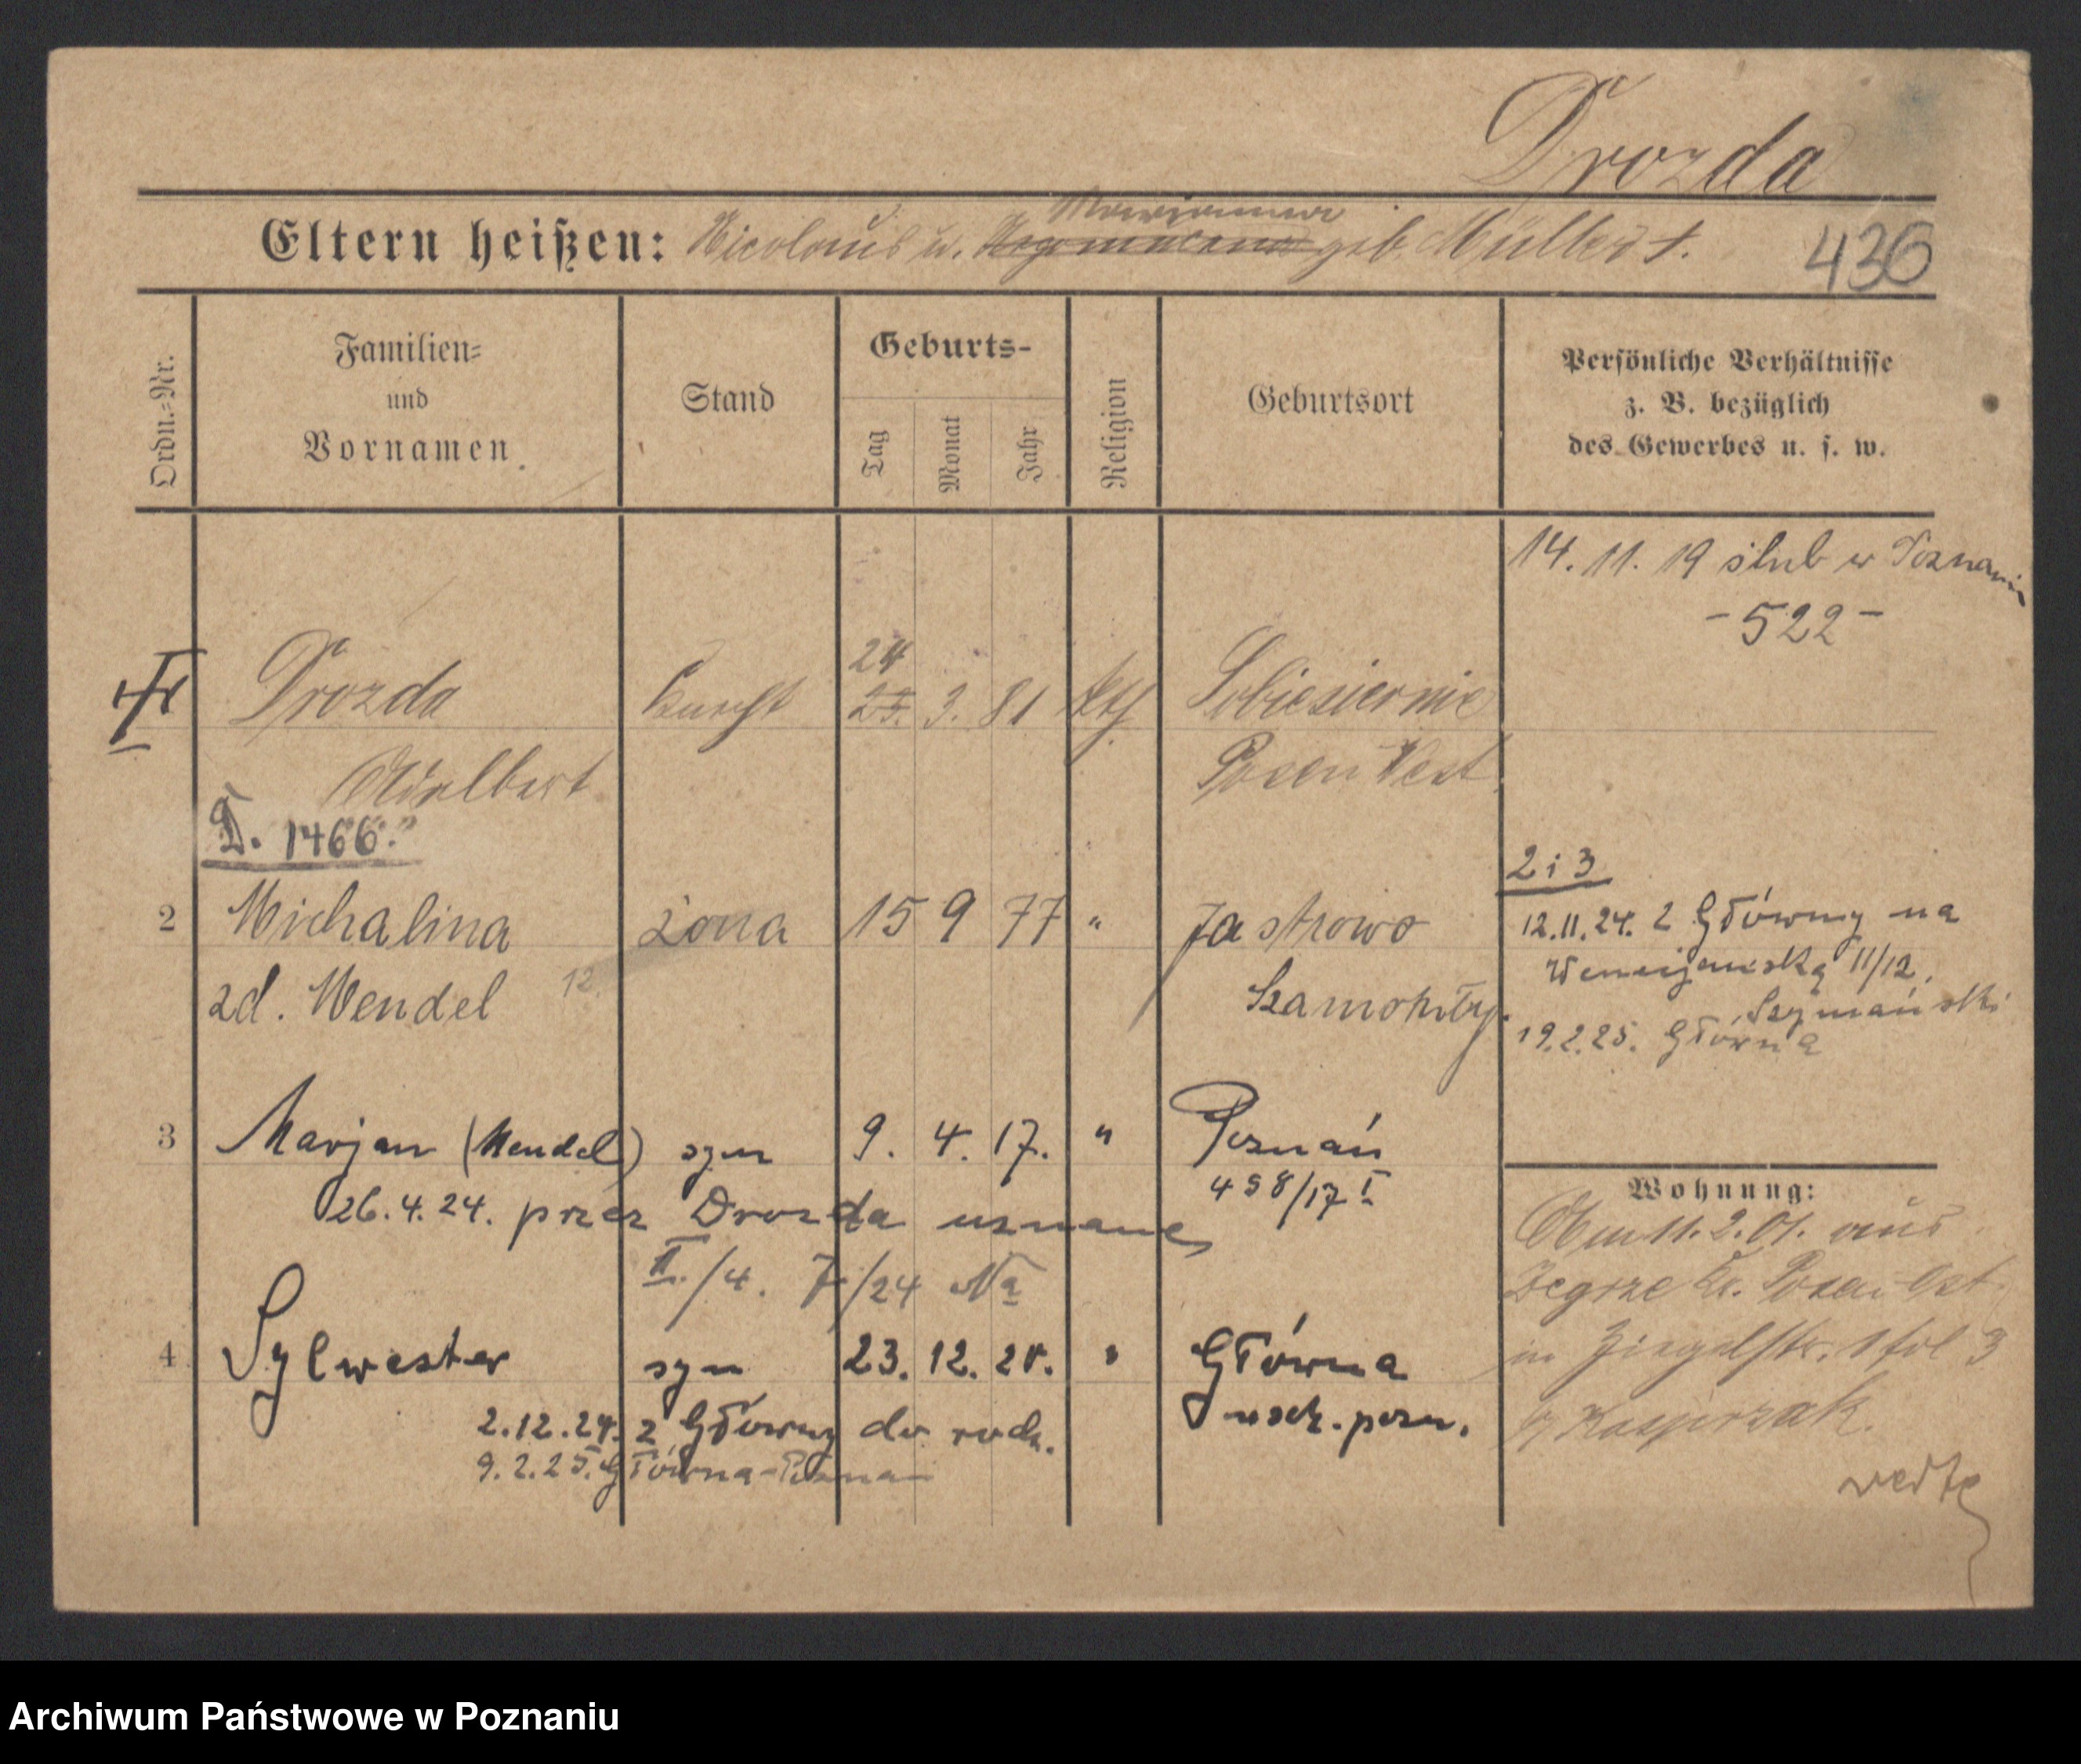 Drozda
Eltern heißen: Nicolaus u. Marianna geb. Müller †.
436
Ordn.=Nr.
Familien=
und
Vornamen
Stand
Geburts-
Tag
Monat
Jahr
Religion
Geburtsort
Persönliche Verhältnisse
z. B. bezüglich
des Gewerbes u. s. w.
14. 11. 19 ślub w Poznaniu
- 522 -
24
Drozda 25. 3. 81 kth Sobiesiernie
Adalbert Posen West
D. 1466.
2 i 3
2 Michalina żona 15 9 77 " Jastrowo
12.11.24. z Główny na
zd. Mendel 12. Szamotuły.
11/12,
Szymański
19.2.25. Główna
3 Marjan (Mendel) syn 9. 4. 17. " Poznań
458/17 I
26.4.24. przez Drozda uznane
II./4. 7/24 Na
Wohnung:
Am 11. 2. 01. aus
Zegrze Kr. Posen Ost
in Ziegelstr. 3
b/ Kasprzak.
verte
4 Sylwester syn 23. 12. 20. " Główna
wsch. pozn.
2.12.24. z Główny do rodz.
9.2.25. Główna-Poznań
Archiwum Państwowe w Poznaniu